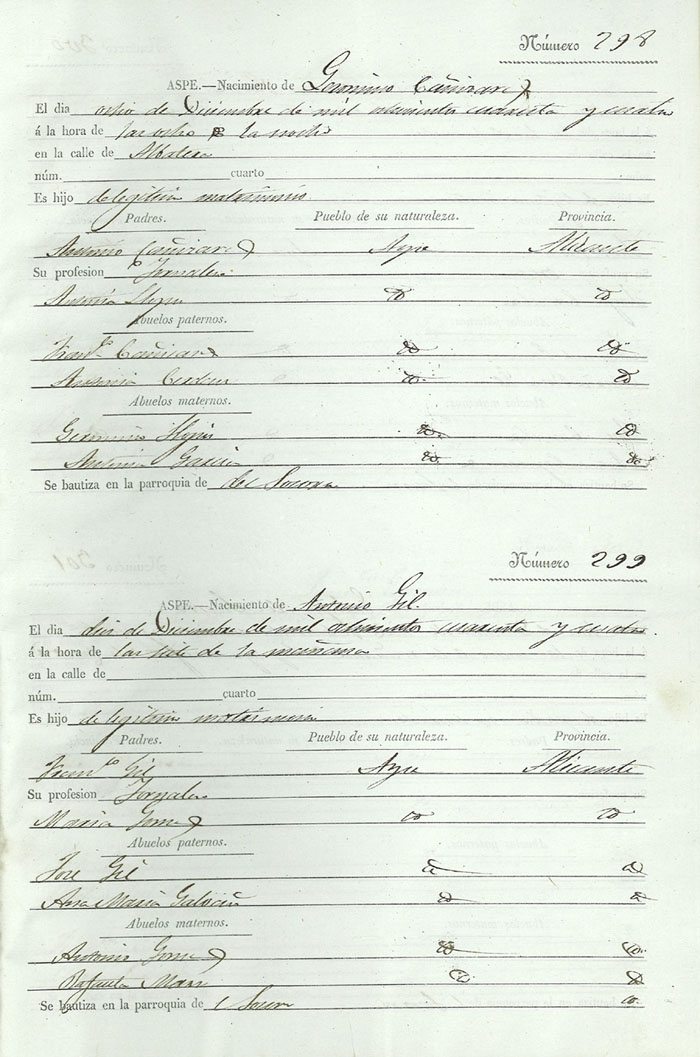 Número 298
ASPE.—Nacimiento de Geronimo Cañizares
El dia ocho de Diciembre de mil ochocientos cuarenta y cuatro
á la hora de las ocho la noche
en la calle de Albatera
núm. cuarto
Es hijo de legitim matrimonio
Padres. Pueblo de su naturaleza. Provincia.
Antonio Cañizares Aspe Alicante
Su profesion Jornalero
Antonia
Abuelos paternos.
Franco Cañizares
Antonia Cerdan
Abuelos maternos.
Geronimo
Antonia Garcia
Se bautiza en la parroquia de del Socorro
Número 299
ASPE.—Nacimiento de Antonio Gil.
El dia diez de Diciembre de mil ochocientos cuarenta y cuatro
á la hora de las siete de la mañana
en la calle de
núm. cuarto
Es hijo de legitim matrimonio
Padres. Pueblo de su naturaleza. Provincia.
Franco Gil Aspe Alicante
Su profesion Jornalero
Maria Gomez
Abuelos paternos.
Jose Gil
Ana Maria
Abuelos maternos.
Antonio Gomez
Rafaela
Se bautiza en la parroquia de Socorro